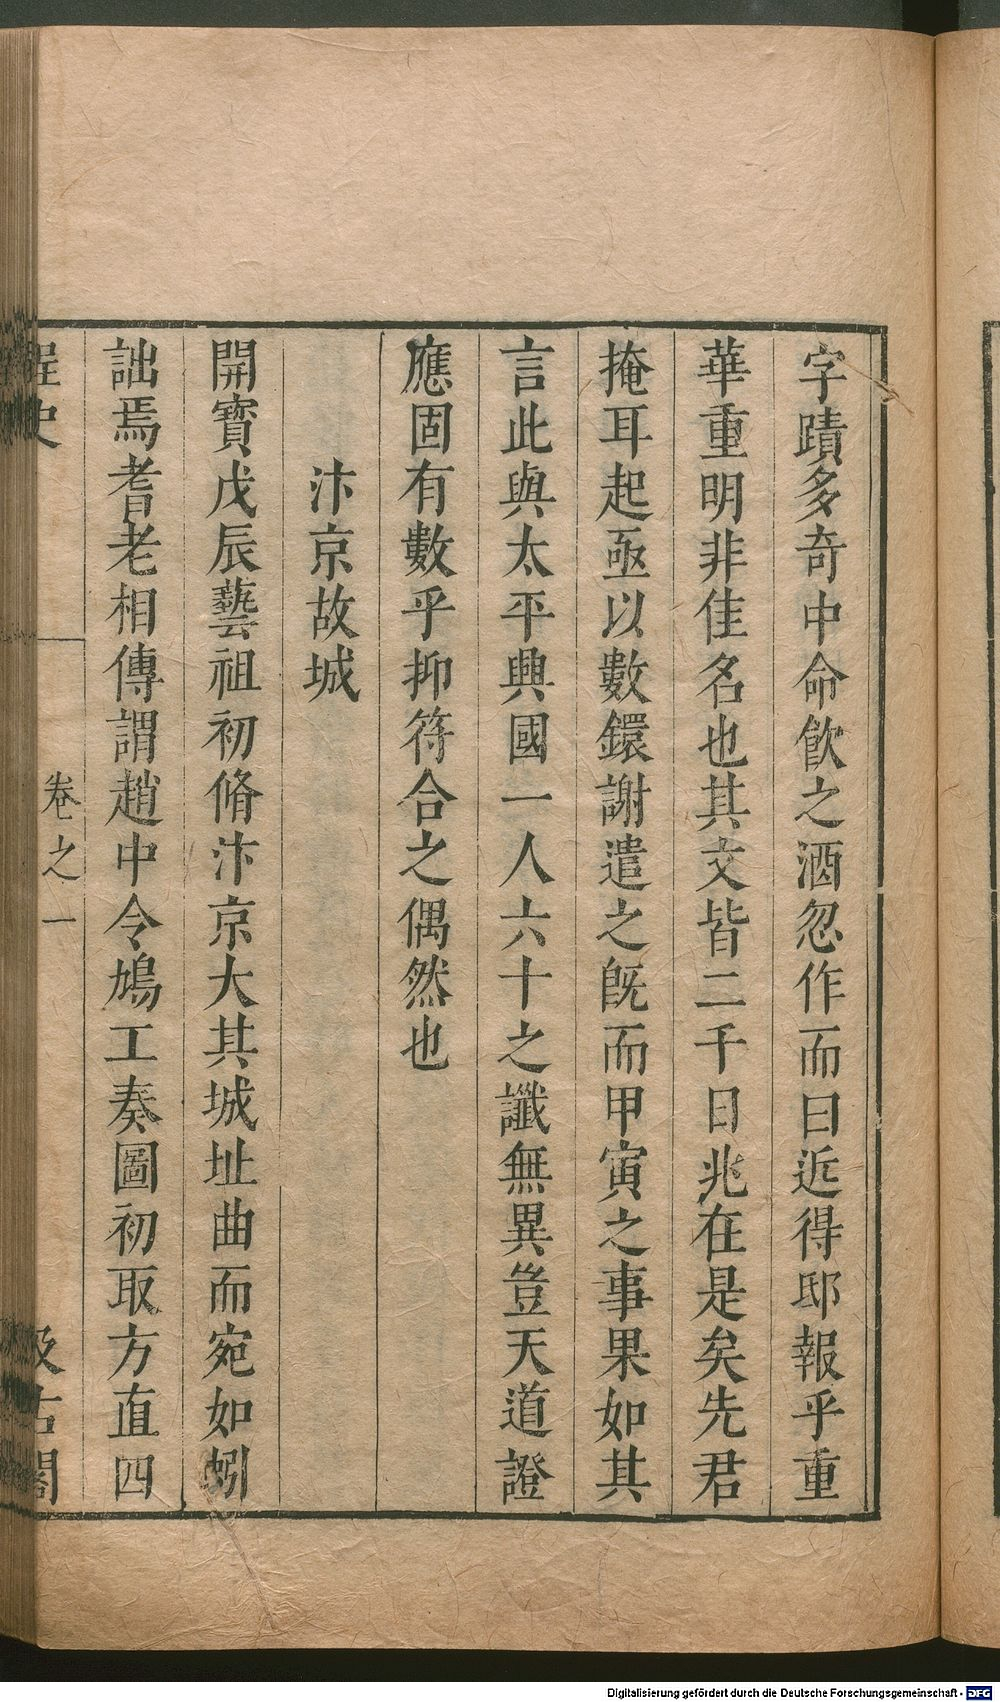 字蹟多奇中命飲之酒忽作而曰近得邸報乎重
華重明非佳名也其文皆二千日兆在是矣先君
掩耳起亟以數鐶謝遣之旣而甲寅之事果如其
言此與太平興國一人六十之讖無異豈天道證
應固有數乎抑符合之偶然也
汴京故城
開寶戊辰藝祖初脩汴京大其城址曲而宛如蚓
詘焉耆老相傳謂趙中令鳩工奏圖初取方直四
桯史
卷之一
汲古閣
Digitalisierung gefördert durch die Deutsche Forschungsgemeinschaft - DFG